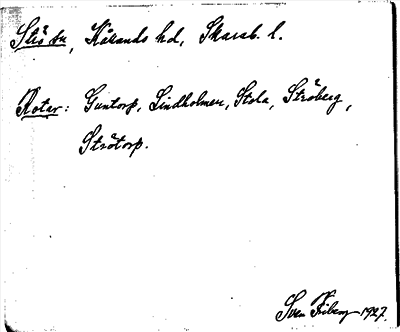 Strö sn, Kållands hd, Skarab. l.
Rotar: Guntorp, Lindholmen, Stola, Ströberg,
Strötorp.
Sven Friberg 1927.